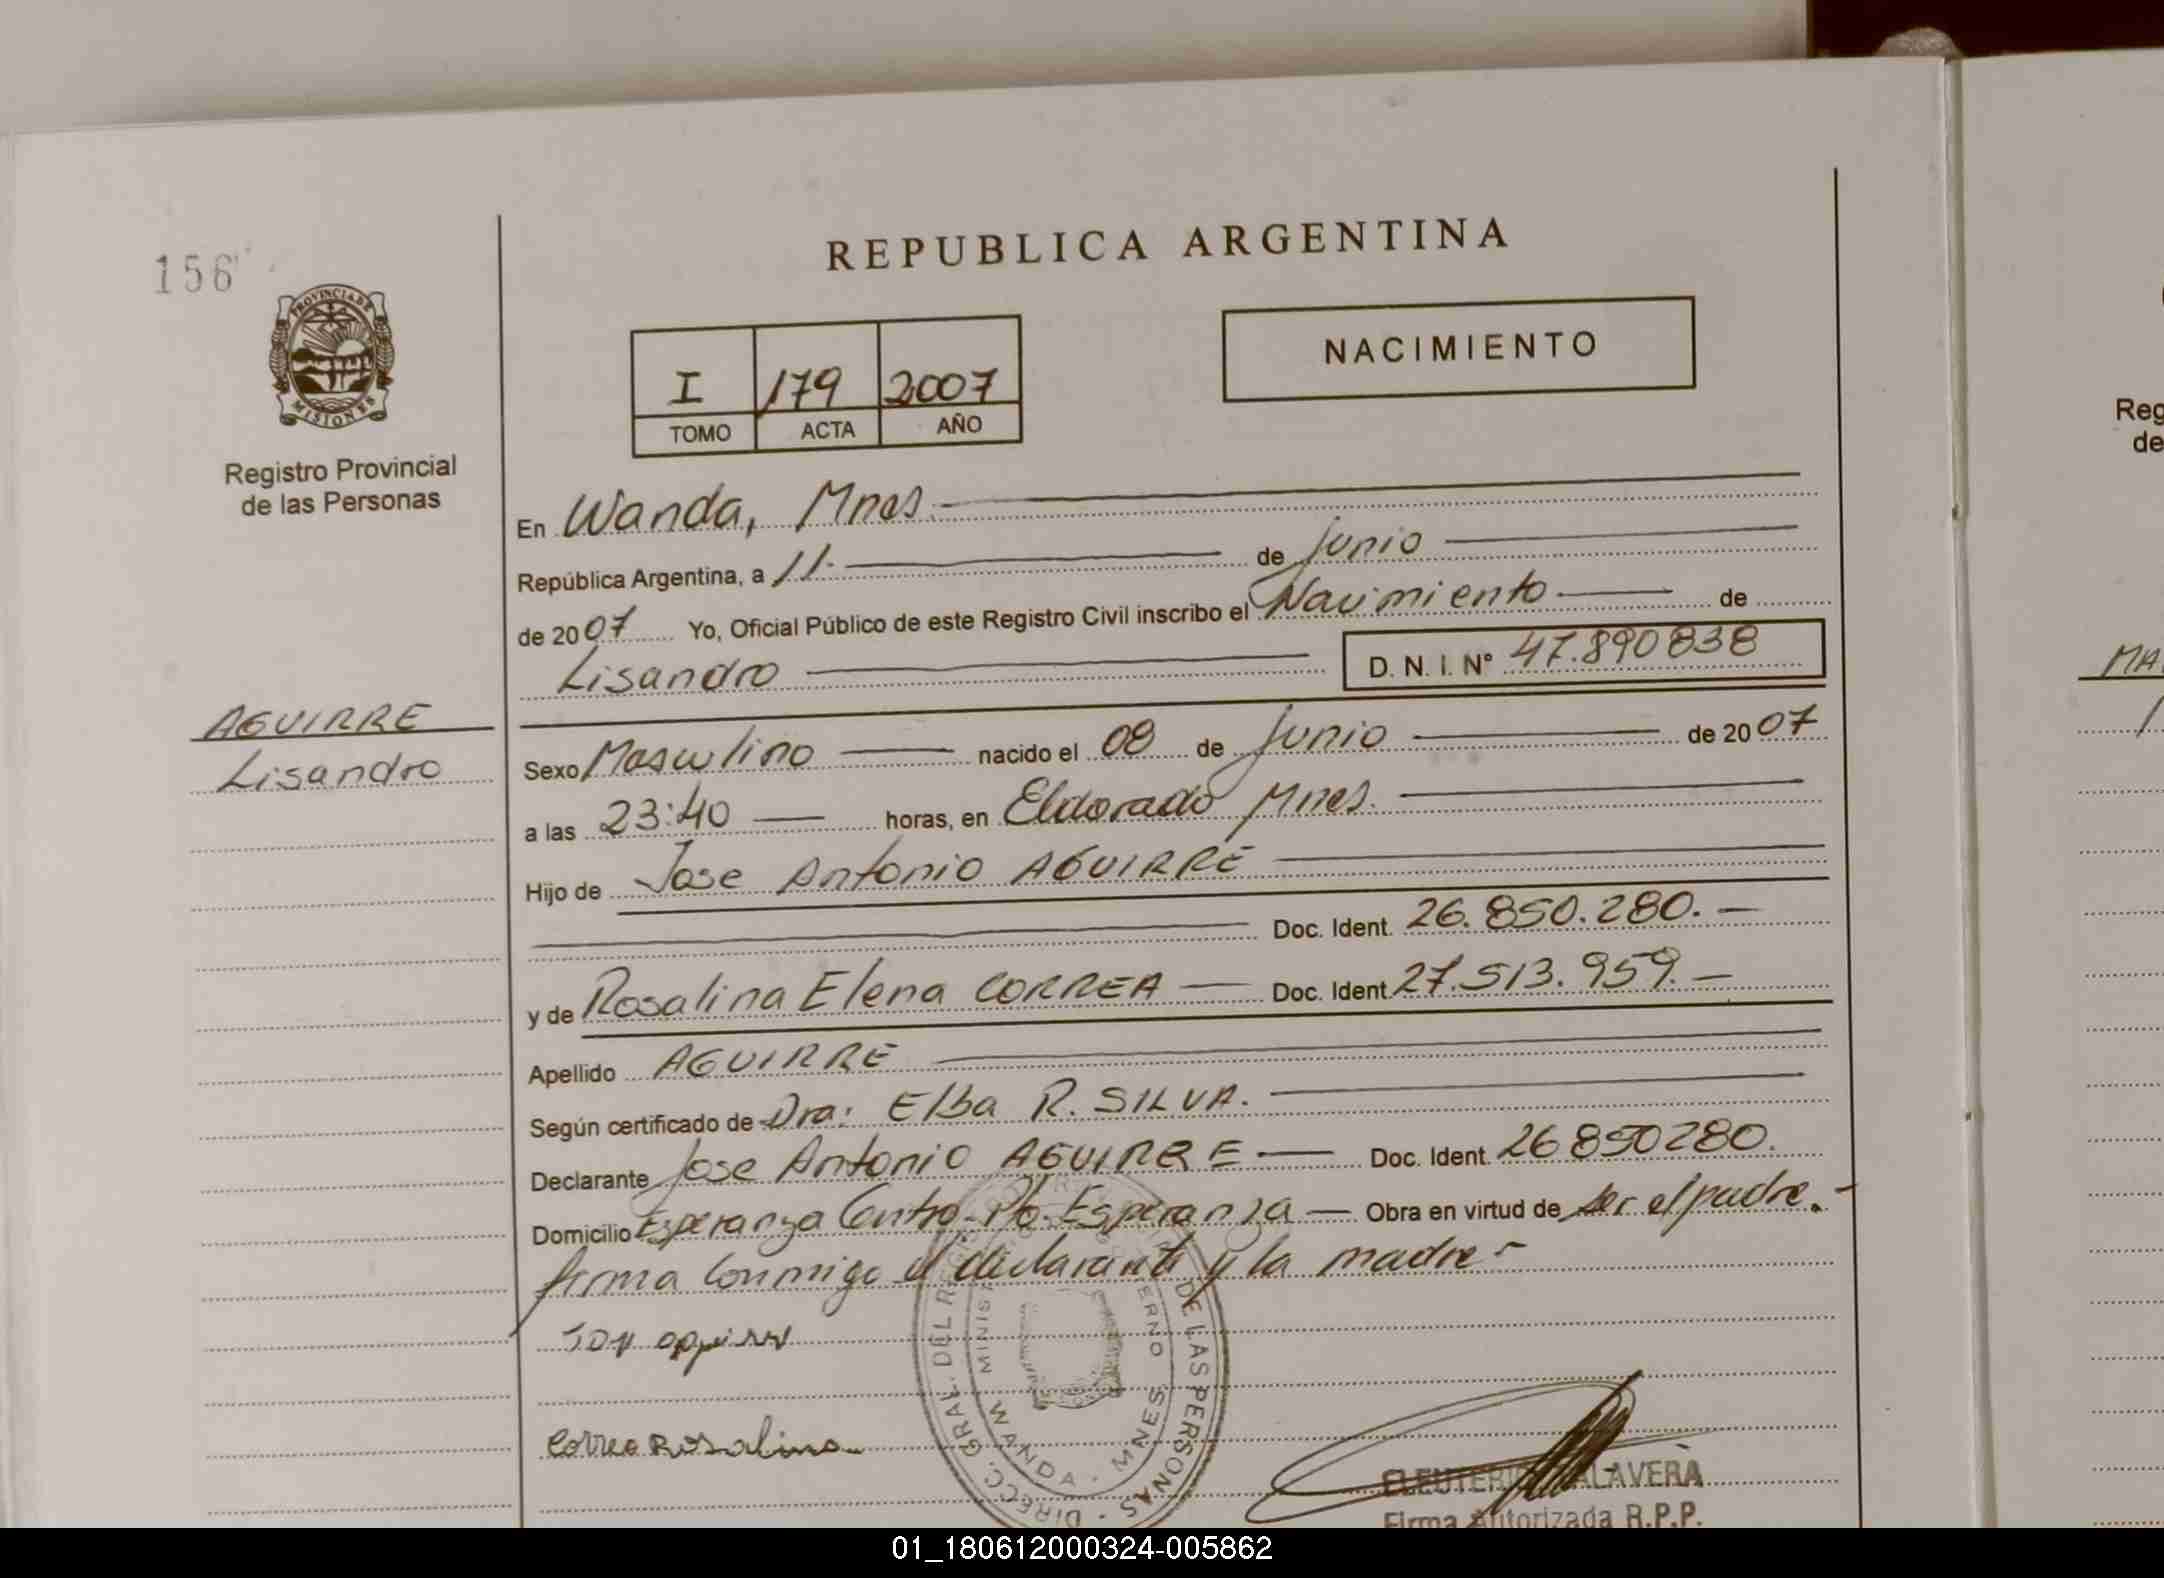 156
PROVINCIA DE
MISIONES
Registro Provincial
de las Personas
AGUIRRE
Lisandro
REPUBLICA ARGENTINA
I 179 2007
TOMO ACTA AÑO
NACIMIENTO
En Wanda, Mnes.
República Argentina, a 11. de junio
de 2007 Yo, Oficial Público de este Registro Civil inscribo el Nacimiento de
Lisandro D. N. I. N° 47.890838
Sexo Masculino nacido el 08 de junio de 2007
a las 23:40 horas, en Eldorado Mnes.
Hijo de Jose Antonio AGUIRRE
Doc. Ident. 26.850.280.
y de Rosalina Elena CORREA Doc. Ident. 27.513.959.
Apellido AGUIRRE
Según certificado de Dra: Elba R. SILVA.
Declarante Jose Antonio AGUIRRE Doc. Ident. 26850280.
Domicilio Esperanza Centro-Pto. Esperanza Obra en virtud de ser el padre.
firma conmigo el declarante y la madre
Correa Rosalina
DIRECC. GRAL. DEL REG DE LAS PERSONAS
MINIST ERNO
WANDA - MNES
ELEUTERIO TALAVERA
Firma Autorizada R.P.P.
Reg
de
MA
01_180612000324-005862